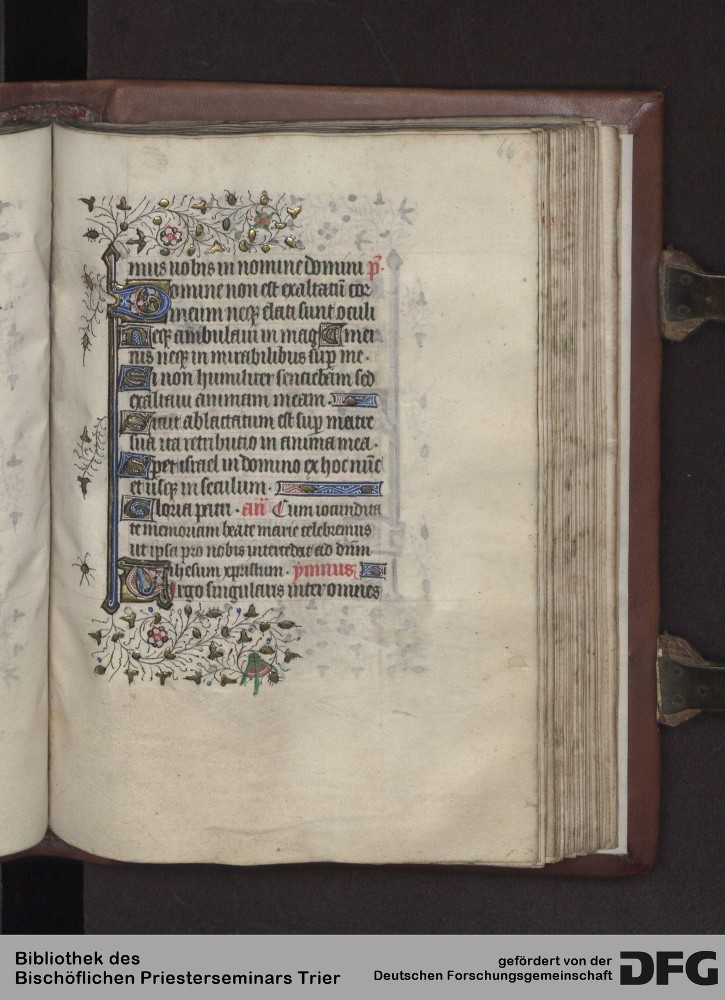 66
mus uobis in nomine domini p̄.
Domine non est exaltatū cor
meum neqꝫ elati sunt oculi
Neqꝫ ambulaui in mag mei
nis neqꝫ in mirabilibus suꝑ me.
Si non humiliter sentiebam sed
exaltaui animam meam.
Sicut ablactatum est suꝑ matre
sua ita retributio in anima mea.
Speret israel in domino ex hoc nūc
et usqꝫ in seculum.
Gloria patri. an̄ Cum iocundita
te memoriam beate marie celebremus
ut ipsa pro nobis intercedat ad dn̄m
ihesum xpristum. ymnus
Virgo singularis inter omnes
Bibliothek des
Bischöflichen Priesterseminars Trier
gefördert von der
Deutschen Forschungsgemeinschaft
DFG